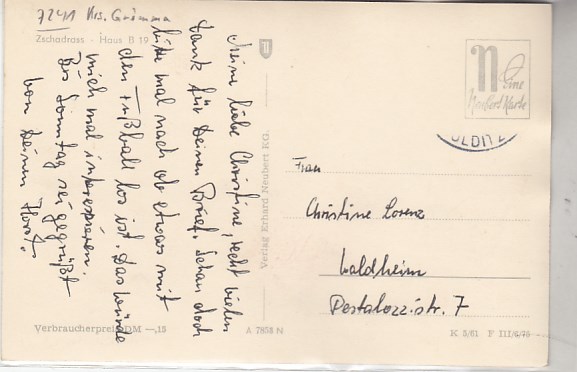 7241 Krs. Grimma
Zschadrass - Haus B 19
Meine liebe Christine, recht vielen
Dank für Deinen Brief. Schau doch
bitte mal nach ob etwas mit
den Fußball los ist. Das würde
mich mal interessieren.
Bis Sonntag sei gegrüßt
von Deinen Horst.
Verbraucherpreis DM —,15
Verlag Erhard Neubert KG.
A 7858 N
N
Eine
Neubert Karte
COLDITZ
Frau
Christine Lorenz
Waldheim
Pestalozzistr. 7
K 5/61 F III/6/76